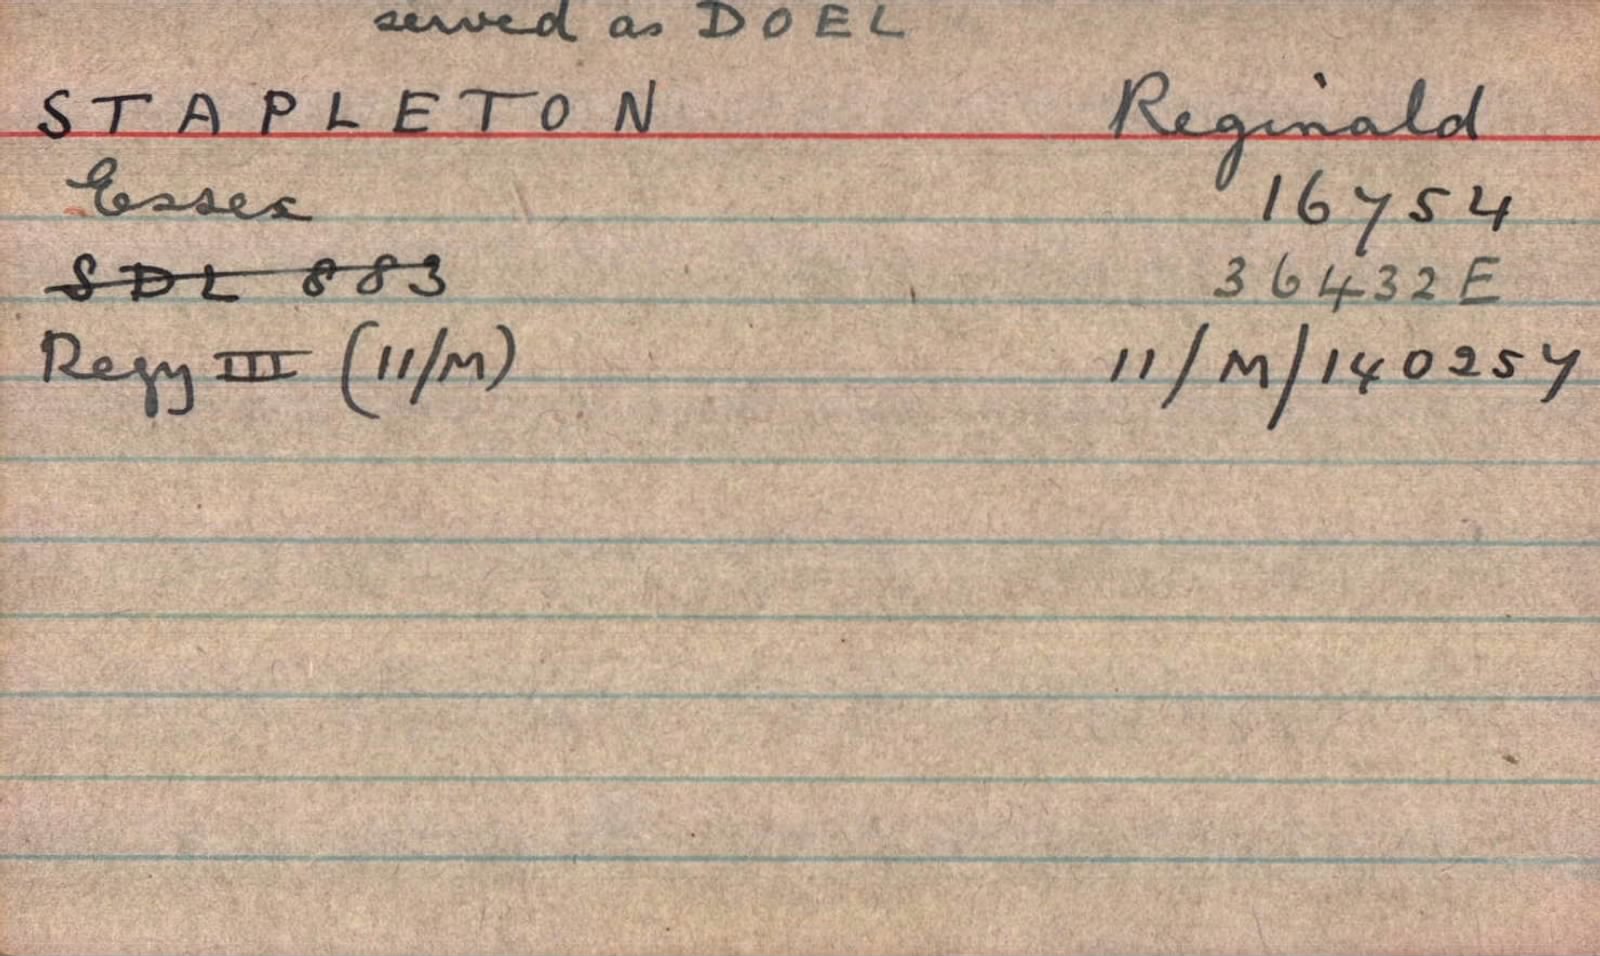 served as DOEL
STAPLETON Reginald
Essex 16754
SDL 883 36432E
Regy III (11/M) 11/M/140257